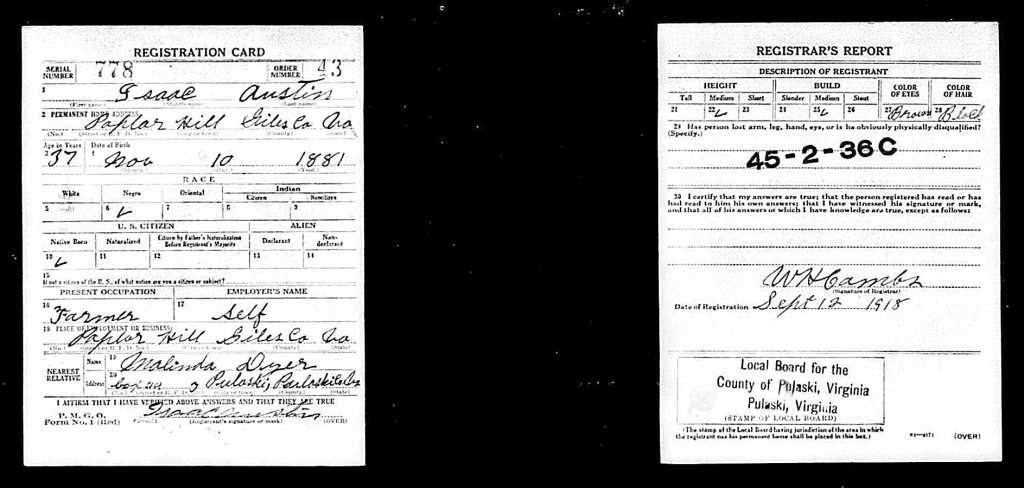 REGISTRATION CARD
SERIAL NUMBER 778 ORDER NUMBER 43
1 Isaac Austin
(First name) (Middle name) (Last name)
2 PERMANENT HOME ADDRESS:
Poplar Hill Giles Co Va
(No.) (Street or R. F. D. No.) (City or town) (County) (State)
Age in Years Date of Birth
3 37 4 Nov 10 1881
(Month) (Day) (Year)
RACE
White Negro Oriental Indian
Citizen Noncitizen
5 6 ✓ 7 8 9
U. S. CITIZEN ALIEN
Native Born Naturalized Citizen by Father's Naturalization Before Registrant's Majority Declarant Non-declarant
10 ✓ 11 12 13 14
15
If not a citizen of the U. S., of what nation are you a citizen or subject?
PRESENT OCCUPATION EMPLOYER'S NAME
16 Farmer 17 Self
18 PLACE OF EMPLOYMENT OR BUSINESS:
Poplar Hill Giles Co Va
(No.) (Street or R. F. D. No.) (City or town) (County) (State)
NEAREST RELATIVE Name 19 Malinda Dyer
Address 20 Pulaski, Pulaski Co Va
I AFFIRM THAT I HAVE VERIFIED ABOVE ANSWERS AND THAT THEY ARE TRUE
P. M. G. O.
Form No. 1 (Red) Isaac Austin
(Registrant's signature or mark) (OVER)
REGISTRAR'S REPORT
DESCRIPTION OF REGISTRANT
HEIGHT BUILD COLOR OF EYES COLOR OF HAIR
Tall Medium Short Slender Medium Stout
21 22 ✓ 23 24 25 ✓ 26 27 Brown 28 Black
29 Has person lost arm, leg, hand, eye, or is he obviously physically disqualified?
(Specify.)
45-2-36 C
30 I certify that my answers are true; that the person registered has read or has
had read to him his own answers; that I have witnessed his signature or mark,
and that all of his answers of which I have knowledge are true, except as follows:
W H Cambs
(Signature of Registrar)
Date of Registration Sept 12 1918
Local Board for the
County of Pulaski, Virginia
Pulaski, Virginia
(STAMP OF LOCAL BOARD)
(The stamp of the Local Board having jurisdiction of the area in which
the registrant has his permanent home shall be placed in this box.)
(OVER)